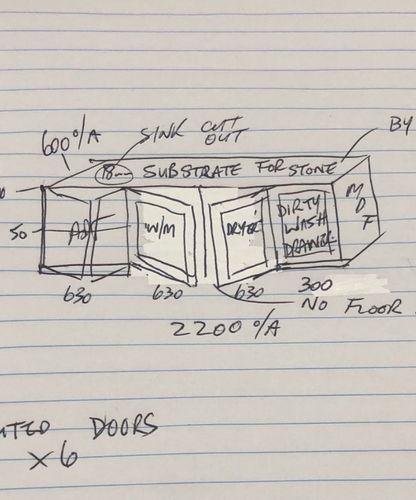 SINK CUTT
OUT
600 O/A
BY
18mm SUBSTRATE FOR STONE
MDF
50
W/M
DRYER
DIRTY
WASH
DRAWER
630 630 630 300
NO FLOOR
2200 O/A
NTED DOORS
x6